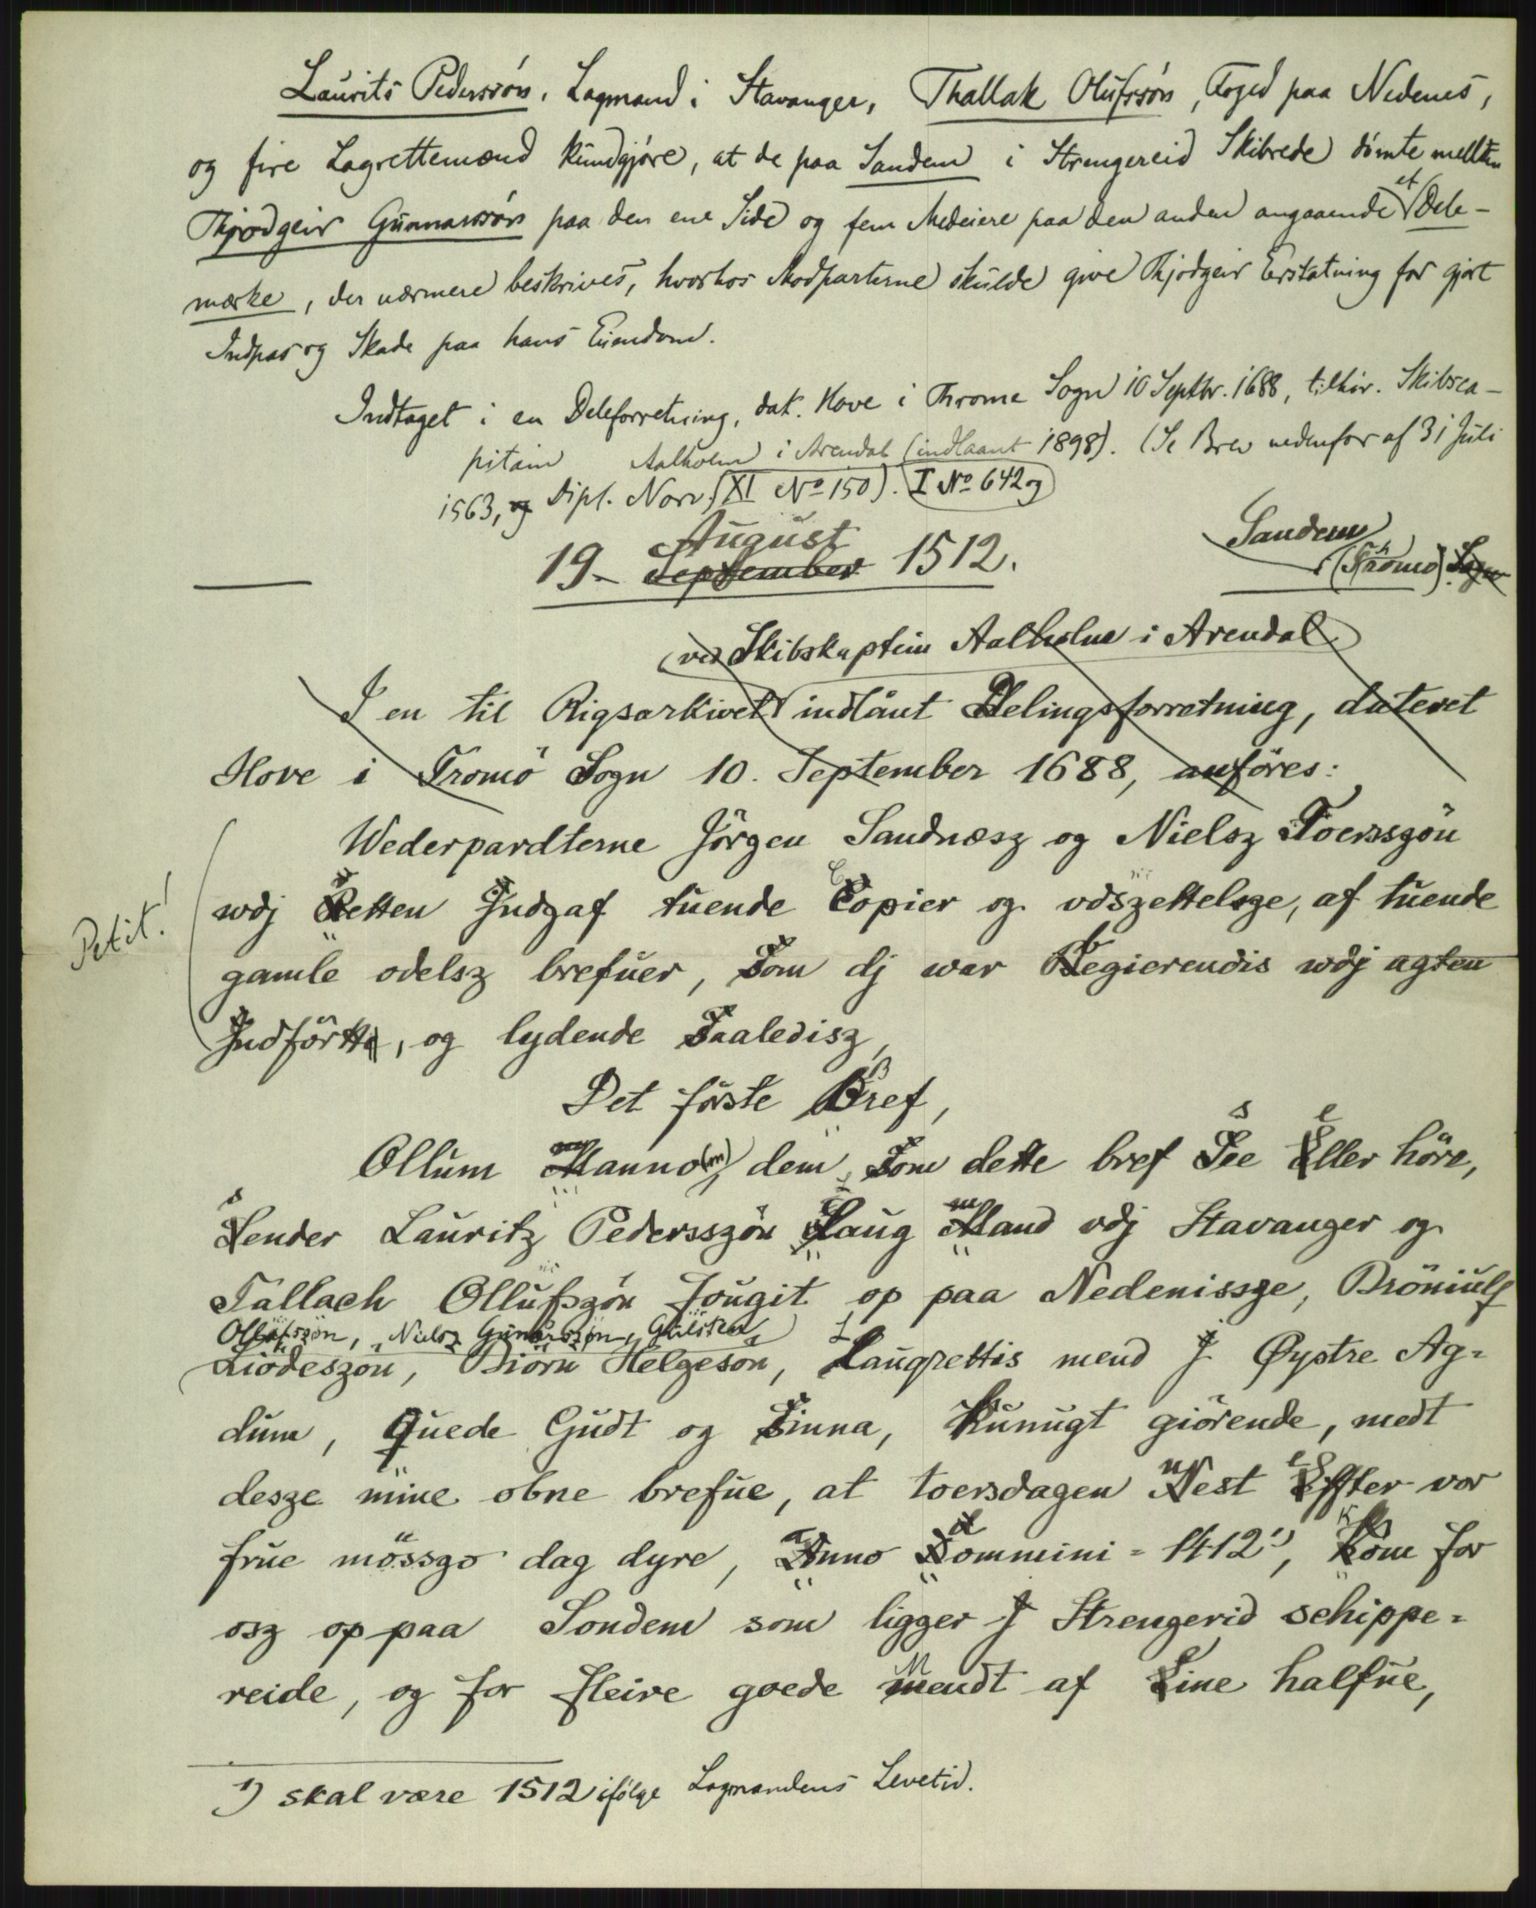 Laurits Pederssøn, Lagmand i Stavanger, Thallak Olufssøn, Foged paa Nedenes,
og fire Lagrettemænd kundgjøre, at de paa Sandem i Strengereid Skibrede dømte mellem
Thjodgeir Gunnarssøn paa den ene Side og fem Medeiere paa den anden angaaende et Dele-
mærke, der nærmere beskrives, hvorhos Modparterne skulde give Thjodgeir Erstatning for gjort
Indpas og Skade paa hans Eiendom.
Indtaget i en Deleforretning, dat. Hove i Thromø Sogn 10 Septbr. 1688, tilhør. Skibsca-
pitain Aalholm i Arendal (indlaant 1898). (Se Brev nedenfor af 31 Juli
1563, og Dipl. Norv. XI No 150). I No 642 og
August
19. September 1512.
Sandem
(Thromø) Sogn
(ved Skibskaptein Aalholm i Arendal)
I en til Rigsarkivet indlånt Delingsforretning, dateret
Hove i Tromö Sogn 10. September 1688, anföres:
Petit!
Wederpardterne Jörgen Sandnæsz og Nielsz Toerssgön
wdj Retten Indgaf tuende Copier og vdszettelsze, af tuende
gamle odelsz brefuer, Som dj war Begierendis wdj agten
Indförtt, og lydende Saaledisz,
Det förste Bref,
Ollum Manno(m) dem Som dette bref See Eller höre,
Sender Lauritz Pederszön Laug Mand vdj Stavanger og
Tallach Ollufszön fougit op paa Nedenissze, Bröniulf
Ollufszön, Nielsz Gunerszön, Gulsten
Liödeszön, Biörn Helgesön, Laugrettis mend J Øystre Ag=
dum, quede Gudt og Sinna, kunugt giörende, medt
desze mine obne brefue, at toersdagen Nest Effter vor
frue mössgo dag dyre, Anno Dommini = 1412 1), Kom for
osz op paa Sondem som ligger J Strengerid schippe=
reide, og for fleire goede Mendt af Eine halfue,
1) skal være 1512 ifølge Lagmandens Levetid.